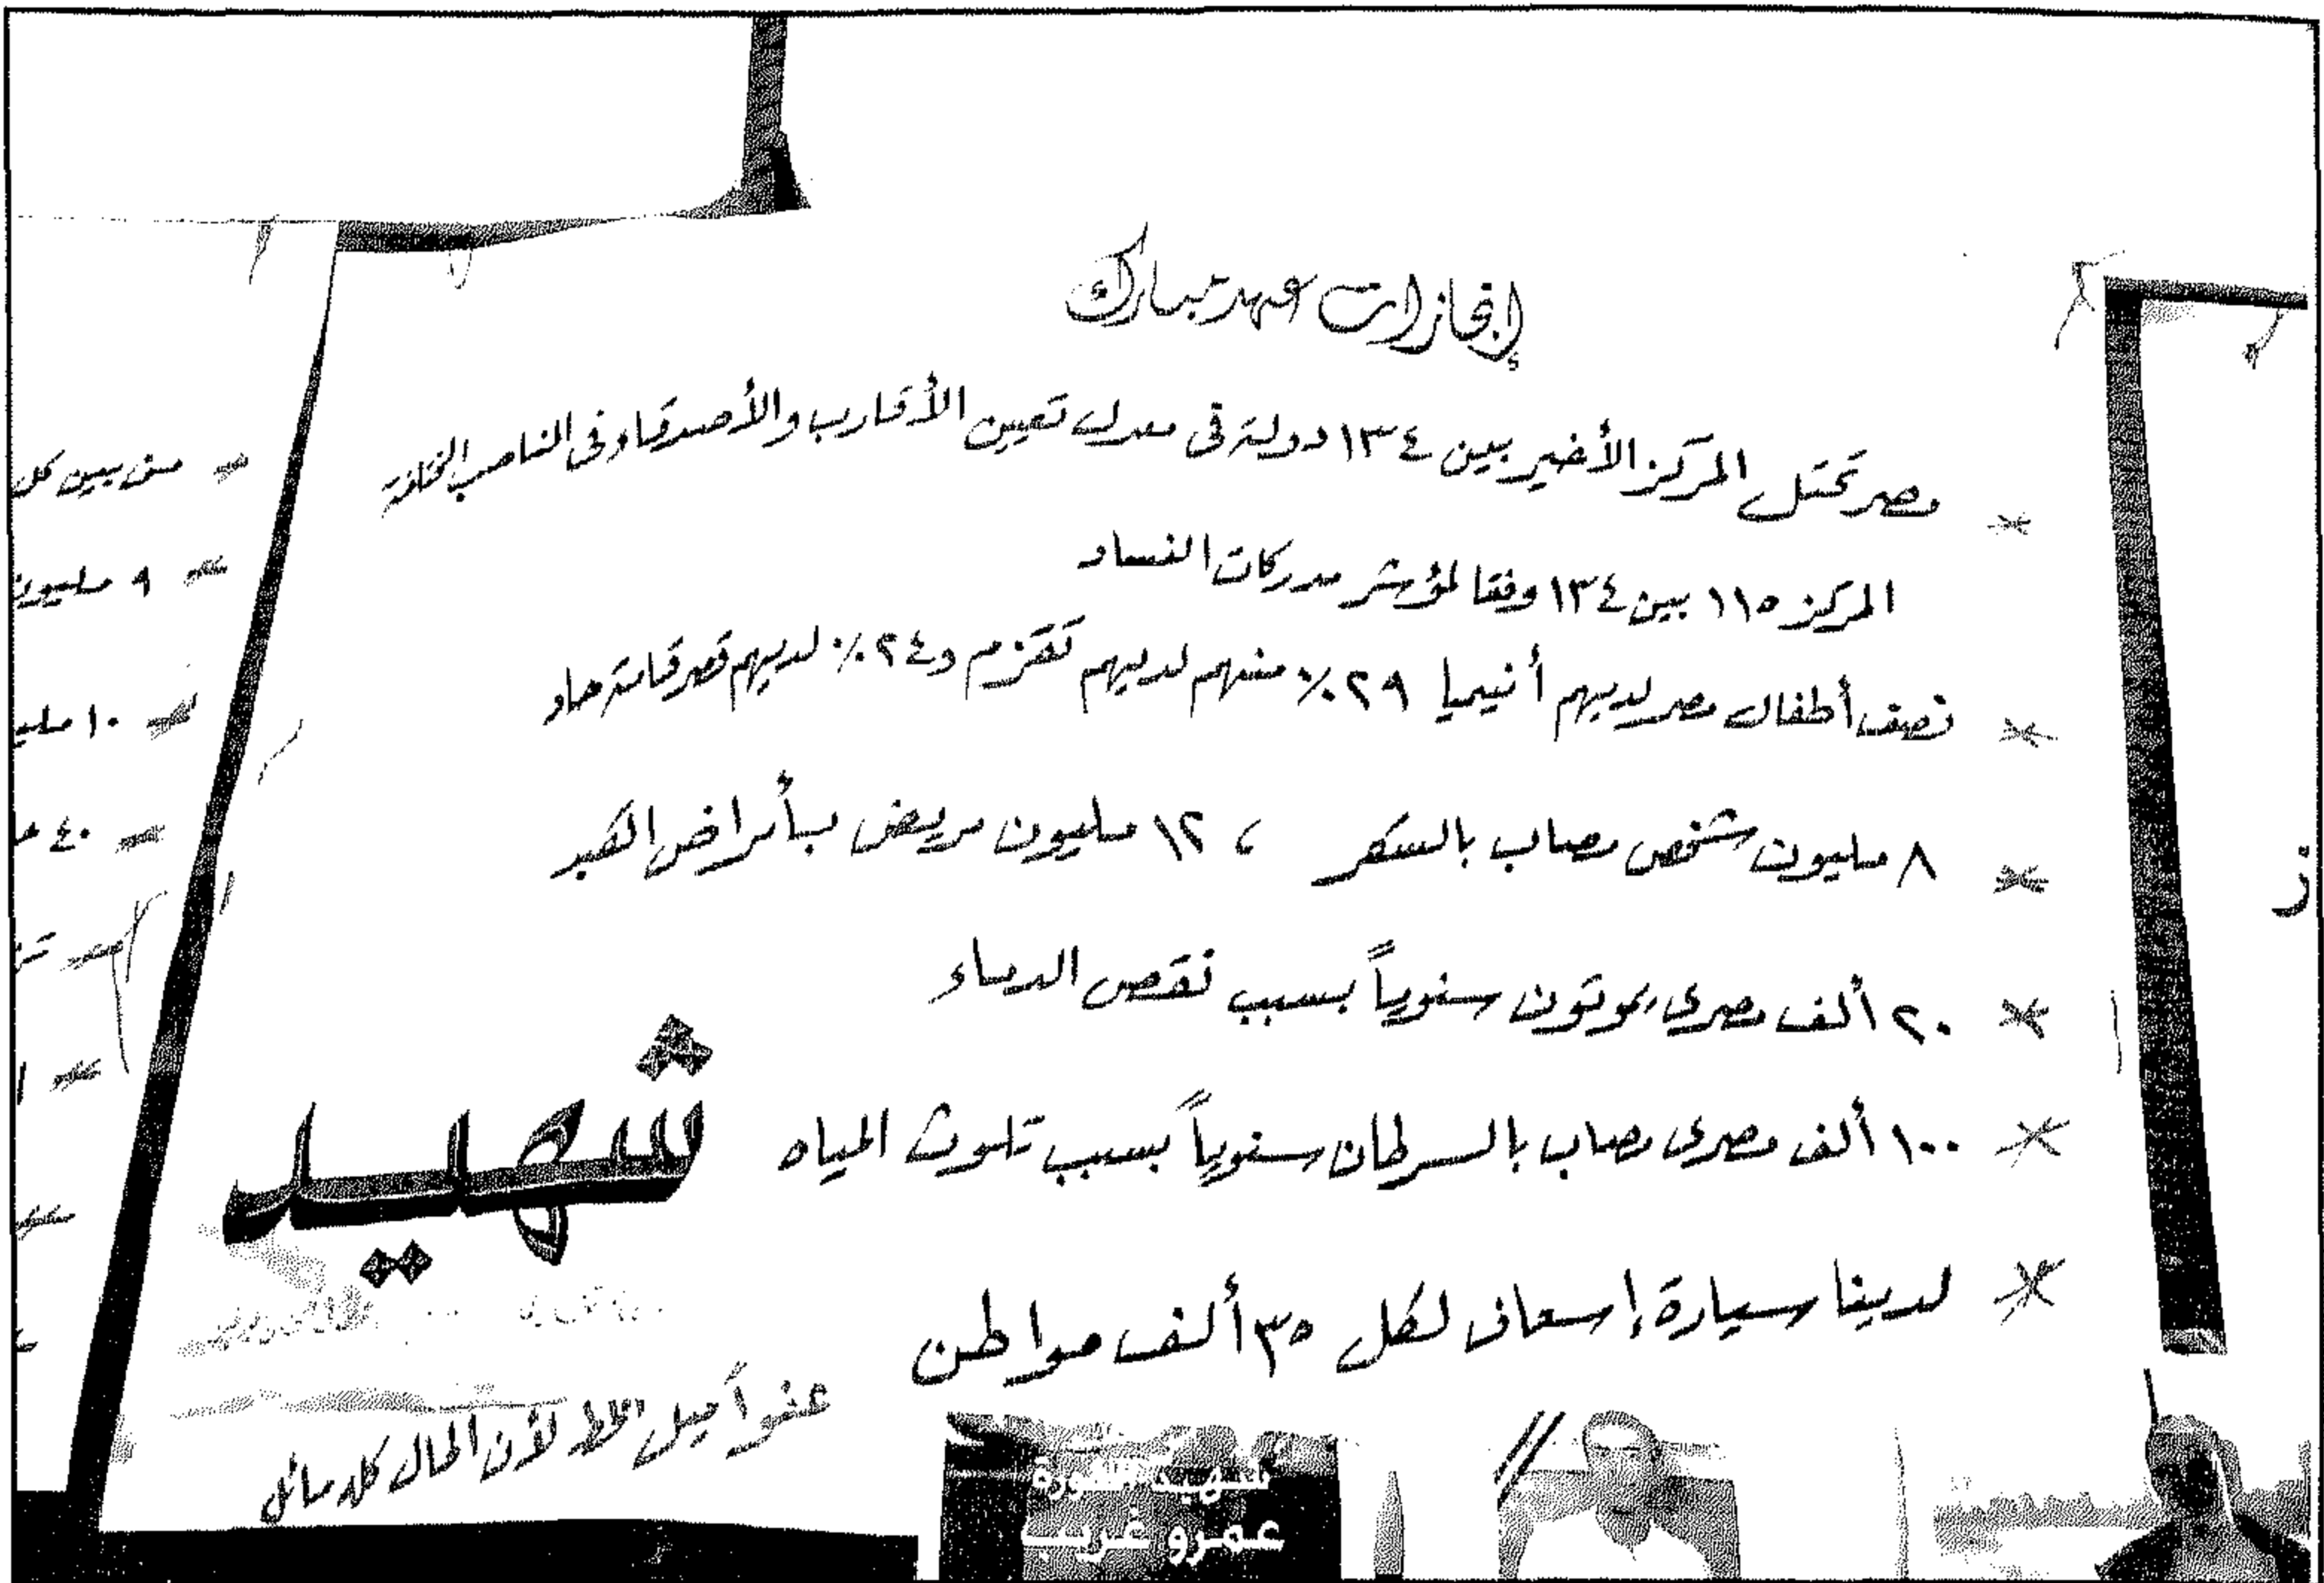 إنجازات عهد مبارك
* مصر تحتل المركز الأخير بين ١٣٤ دولة فى معدل تعيين الأقارب والأصدقاء فى المناصب المختلفة
المركز ١١٥ بين ١٣٤ وفقا لمؤشر مدركات الفساد
* نصف أطفال مصر لديهم أنيميا ٢٩٪ منهم لديهم تقزم و٢٤٪ لديهم قصر قامة حاد
* ٨ مليون شخص مصاب بالسكر ، ١٢ مليون مريض بأمراض الكبد
* ٢٠ ألف مصرى يموتون سنوياً بسبب نقص الدماء
* ١٠٠ ألف مصرى مصاب بالسرطان سنوياً بسبب تلوث المياه
* لدينا سيارة إسعاف لكل ٣٥ ألف مواطن
شهيد
عفواً ميل الخط لأن الحال كله مائل
شهيد الثورة
عمرو غريب
* من بين كل
* ٩ مليون
* ١٠ مليـ
* ٤٠
ز